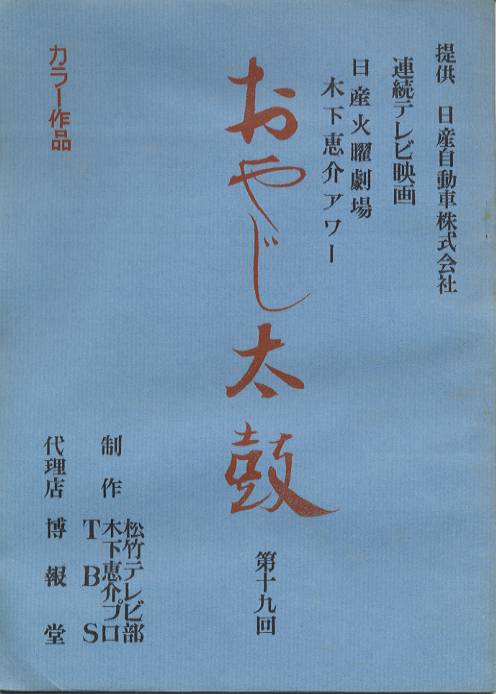 提供 日産自動車株式会社
連続テレビ映画
日産火曜劇場
木下恵介アワー
おやじ太鼓
第十九回
カラー作品
制作
松竹テレビ部
木下恵介プロ
TBS
代理店 博報堂